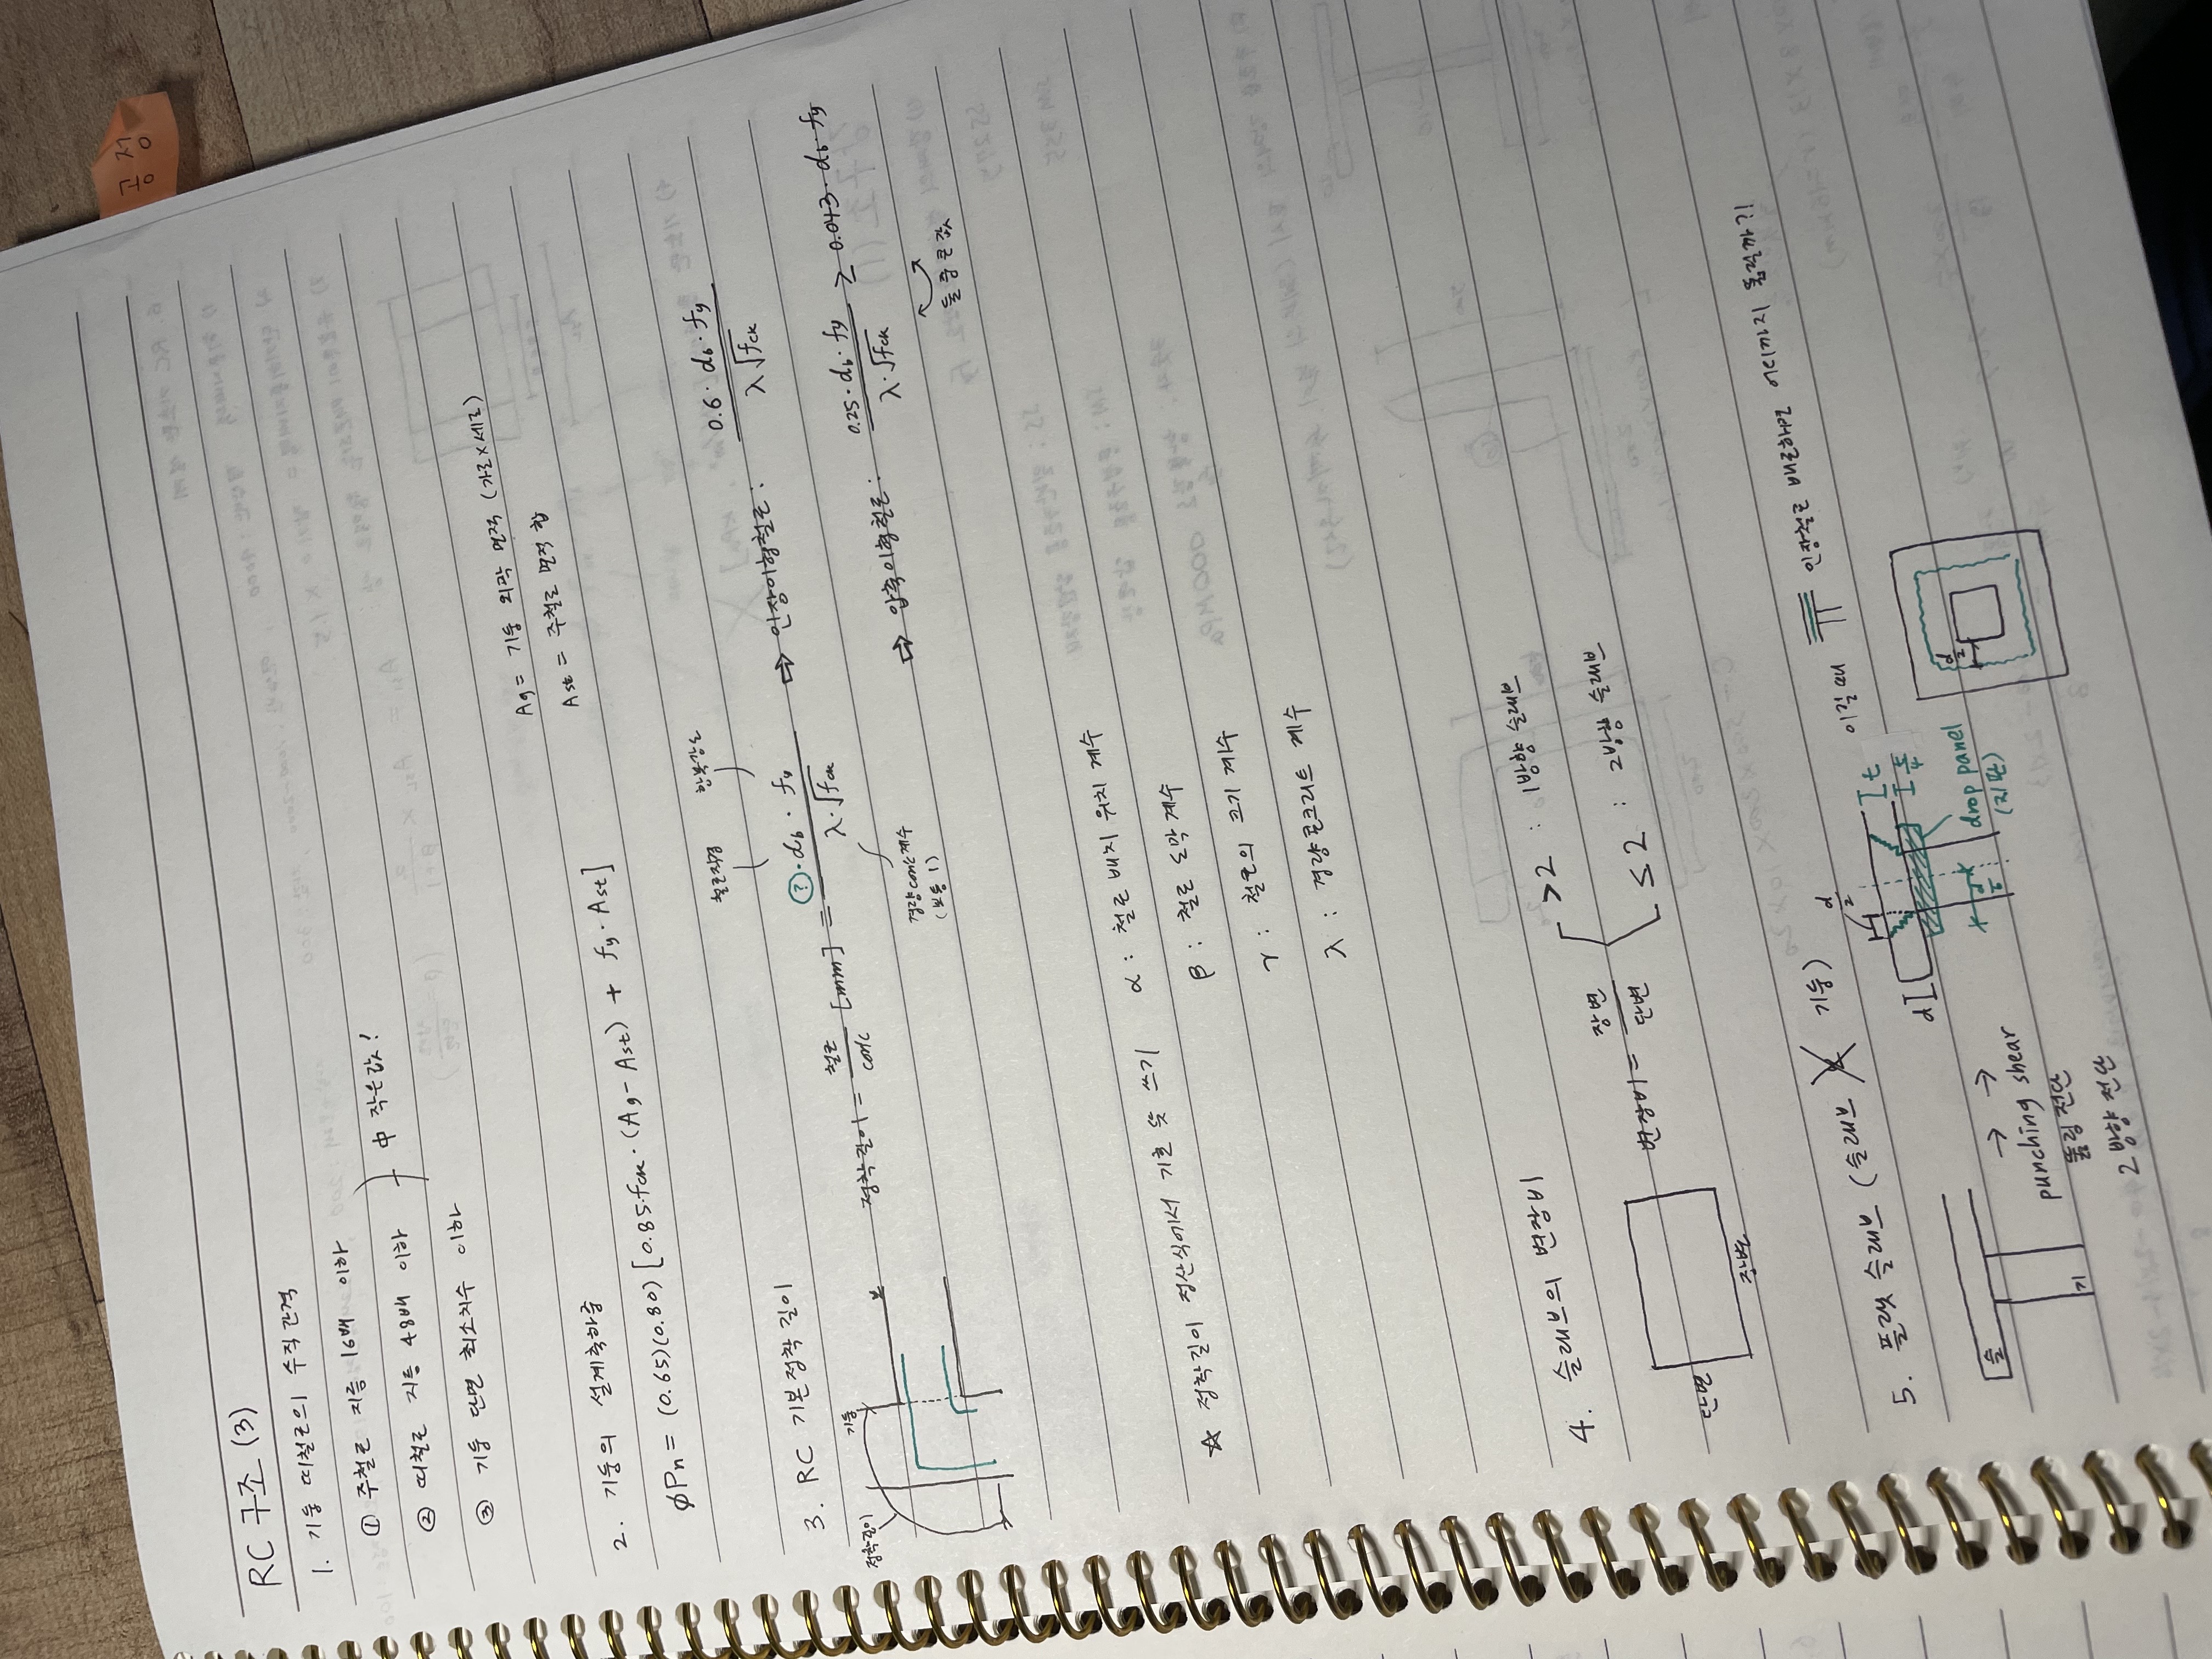 공정
RC 구조 (3)
1. 기둥 띠철근의 수직간격
① 주철근 지름 16배 이하
② 띠철근 지름 48배 이하
③ 기둥 단면 최소치수 이하
中 작은값!
2. 기둥의 설계축하중
Ag = 기둥 외곽 면적 (가로×세로)
Ast = 주철근 면적 합
øPn = (0.65)(0.80) [0.85fck·(Ag-Ast) + fy·Ast]
3. RC 기본정착길이
정착길이
기둥
보
정착길이 = 철근/conc [mm] = ?·db·fy / λ·√fck
철근직경
항복강도
경량conc계수
(보통1)
⇨ 인장이형철근: 0.6·db·fy / λ√fck
⇨ 압축이형철근: 0.25·db·fy / λ·√fck ≥ 0.043·db·fy
둘 중 큰 값
☆ 정착길이 정산식에서 기호 뜻 쓰기
α: 철근 배치 위치 계수
β: 철근 도막 계수
γ: 철근의 크기 계수
λ: 경량콘크리트 계수
4. 슬래브의 변장비
단변
장변
변장비 = 장변/단변
>2 : 1방향 슬래브
≤2 : 2방향 슬래브
5. 플랫 슬래브 (슬래브 X 기둥) 이질때 인장철근 배근하면 어디까지 뚫릴까?!
슬
기
→ → →
punching shear
뚫림전단
2방향 전단
d
d/2
t
drop panel
(지판)
d/2